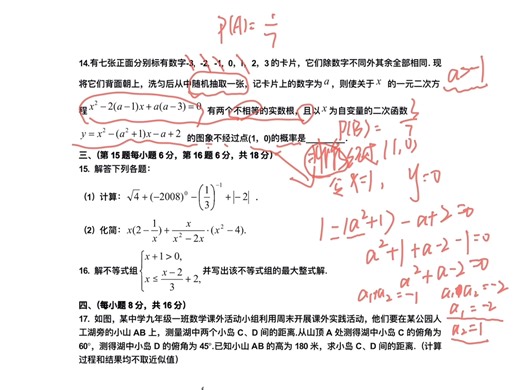 P(A)= 1/7
14.有七张正面分别标有数字-3, -2, -1, 0, 1, 2, 3 的卡片，它们除数字不同外其余全部相同. 现
将它们背面朝上，洗匀后从中随机抽取一张，记卡片上的数字为 a ，则使关于 x 的一元二次方
a>-1
程 x²-2(a-1)x+a(a-3)=0 有两个不相等的实数根，且以 x 为自变量的二次函数
y=x²-(a²+1)x-a+2 的图象不经过点(1, 0)的概率是________.
P(B)= 3/7
(1,0)
三、（第 15 题每小题 6 分，第 16 题 6 分，共 18 分）
令x=1, y=0
15. 解答下列各题：
（1）计算：√4+(-2008)⁰-(1/3)⁻¹+|-2| .
1-(a²+1)-a+2=0
（2）化简：x(2-1/x)+x/(x²-2x)·(x²-4).
a²+1+a-2-1=0
a²+a-2=0
16. 解不等式组{x+1>0, x≤(x-2)/3+2, 并写出该不等式组的最大整式解.
a₁+a₂=-1 a₁·a₂=-2
a₁=-2
a₂=1
四、（每小题 8 分，共 16 分）
17. 如图，某中学九年级一班数学课外活动小组利用周末开展课外实践活动，他们要在某公园人
工湖旁的小山 AB 上，测量湖中两个小岛 C、D 间的距离.从山顶 A 处测得湖中小岛 C 的俯角为
60°，测得湖中小岛 D 的俯角为 45°.已知小山 AB 的高为 180 米，求小岛 C、D 间的距离.（计算
过程和结果均不取近似值）